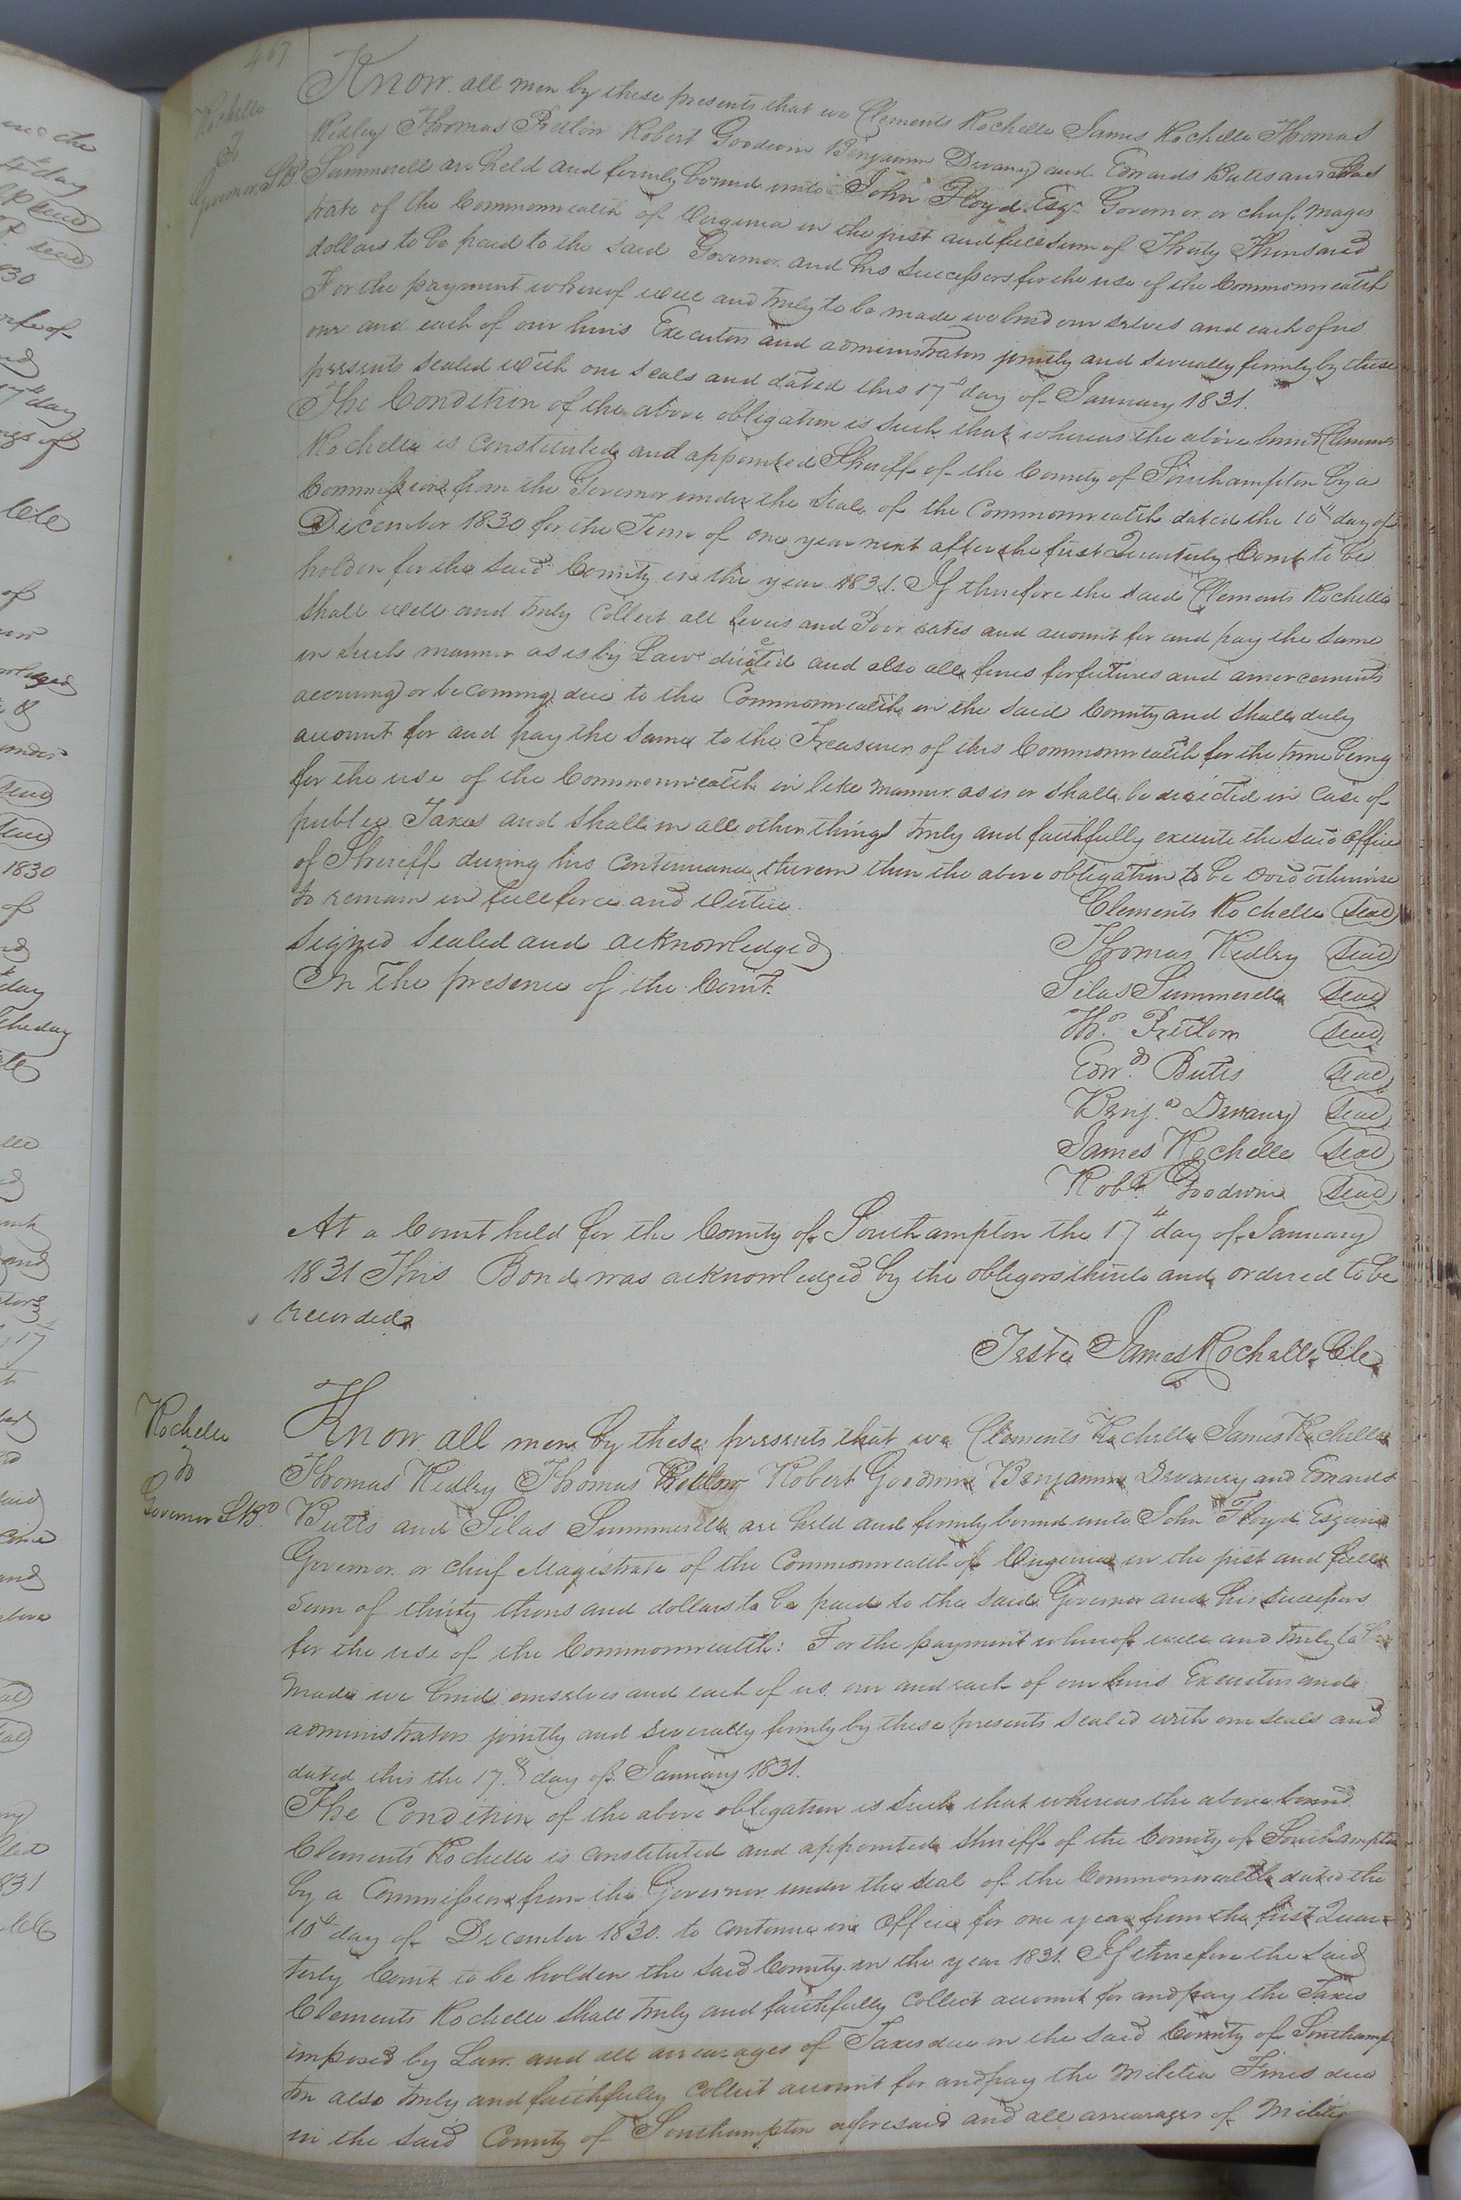 467
Rochelle
To
Governor S.B.d
Know all men by these presents that we Clements Rochelle James Rochelle Thomas
Ridley Thomas Pretlow Robert Goodwin Benjamin Devany and Edwards Butts and Silas
Summerell are held and firmly bound unto John Floyd Esqr. Governor or chief Magis
trate of the Commonwealth of Virginia in the just and full sum of Thirty Thousand
dollars to be paid to the said Governor and his successors for the use of the Commonwealth
For the payment whereof well and truly to be made we bind our selves and each of us
our and each of our heirs Executors and administrators jointly and severally firmly by these
presents sealed with our seals and dated this 17th day of January 1831.
The Condition of the above obligation is such that whereas the above bound Clements
Rochelle is constituted and appointed Sheriff of the County of Southampton by a
Commission from the Governor under the seal of the Commonwealth dated the 10th day of
December 1830 for the Term of one year next after the first Quarterly Court to be
holden for the said County in the year 1831. If therefore the said Clements Rochelle
shall well and truly collect all levies and Poor rates and account for and pay the same
in such manner as is by Law directed and also all fines forfeitures and amercements
accruing or becoming due to the Commonwealth in the said County and shall duly
account for and pay the same to the Treasurer of this Commonwealth for the time being
for the use of the Commonwealth in like manner as is or shall be directed in case of
public Taxes and shall in all other things truly and faithfully execute the said office
of Sheriff during his continuance therein then the above obligation to be void otherwise
to remain in full force and virtue.
Signed Sealed and acknowledged
In the presence of the Court.
Clements Rochelle Seal
Thomas Ridley Seal
Silas Summerell Seal
Tho.s Pretlow Seal
Edw.ds Butts Seal
Benj.a Devany Seal
James Rochelle Seal
Rob.t Goodwin Seal
At a Court held for the County of Southampton the 17th day of January
1831 This Bond was acknowledged by the obligors thereto and ordered to be
recorded
Teste James Rochelle Clk
Rochelle
To
Governor S.B.d
Know all men by these presents that we Clements Rochelle James Rochelle
Thomas Ridley Thomas Pretlow Robert Goodwin Benjamin Devaney and Edwards
Butts and Silas Summerell are held and firmly bound unto John Floyd Esquire
Governor or chief Magistrate of the Commonwealth of Virginia in the just and full
Sum of thirty thousand dollars to be paid to the said Governor and his successors
for the use of the Commonwealth: For the payment whereof well and truly to be
made we bind ourselves and each of us our and each of our heirs Executors and
administrators jointly and severally firmly by these presents sealed with our seals and
dated this the 17th day of January 1831.
The Condition of the above obligation is such that whereas the above bound
Clements Rochelle is constituted and appointed sheriff of the County of Southampton
by a Commission from the Governor under the seal of the Commonwealth dated the
10th day of December 1830. to continue in office for one year from the first Quar
terly Court to be holden the said County in the year 1831. If therefore the said
Clements Rochelle shall truly and faithfully collect account for and pay the Taxes
imposed by Law and all arrearages of Taxes due in the said County of Southamp
ton also truly and faithfully collect account for and pay the Militia Fines due
in the said County of Southampton aforesaid and all arrearages of Militia